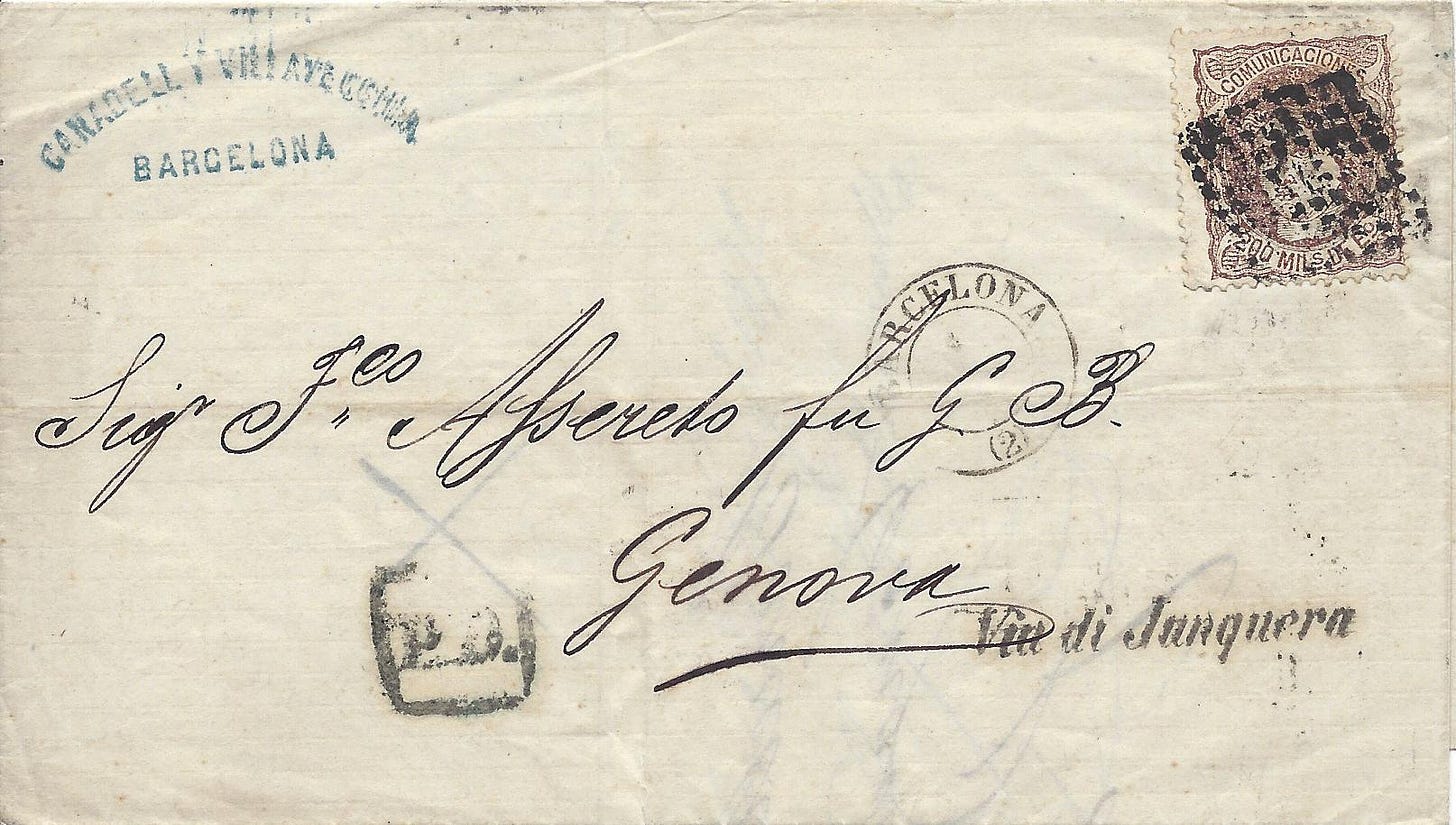 CANADELL Y VILLAVECCHIA
BARCELONA
COMUNICACIONES
200 MILS. DE Eo
BARCELONA
(2)
Sigr Fco Assereto fu G B.
Genova
P.D.
Via di Junquera